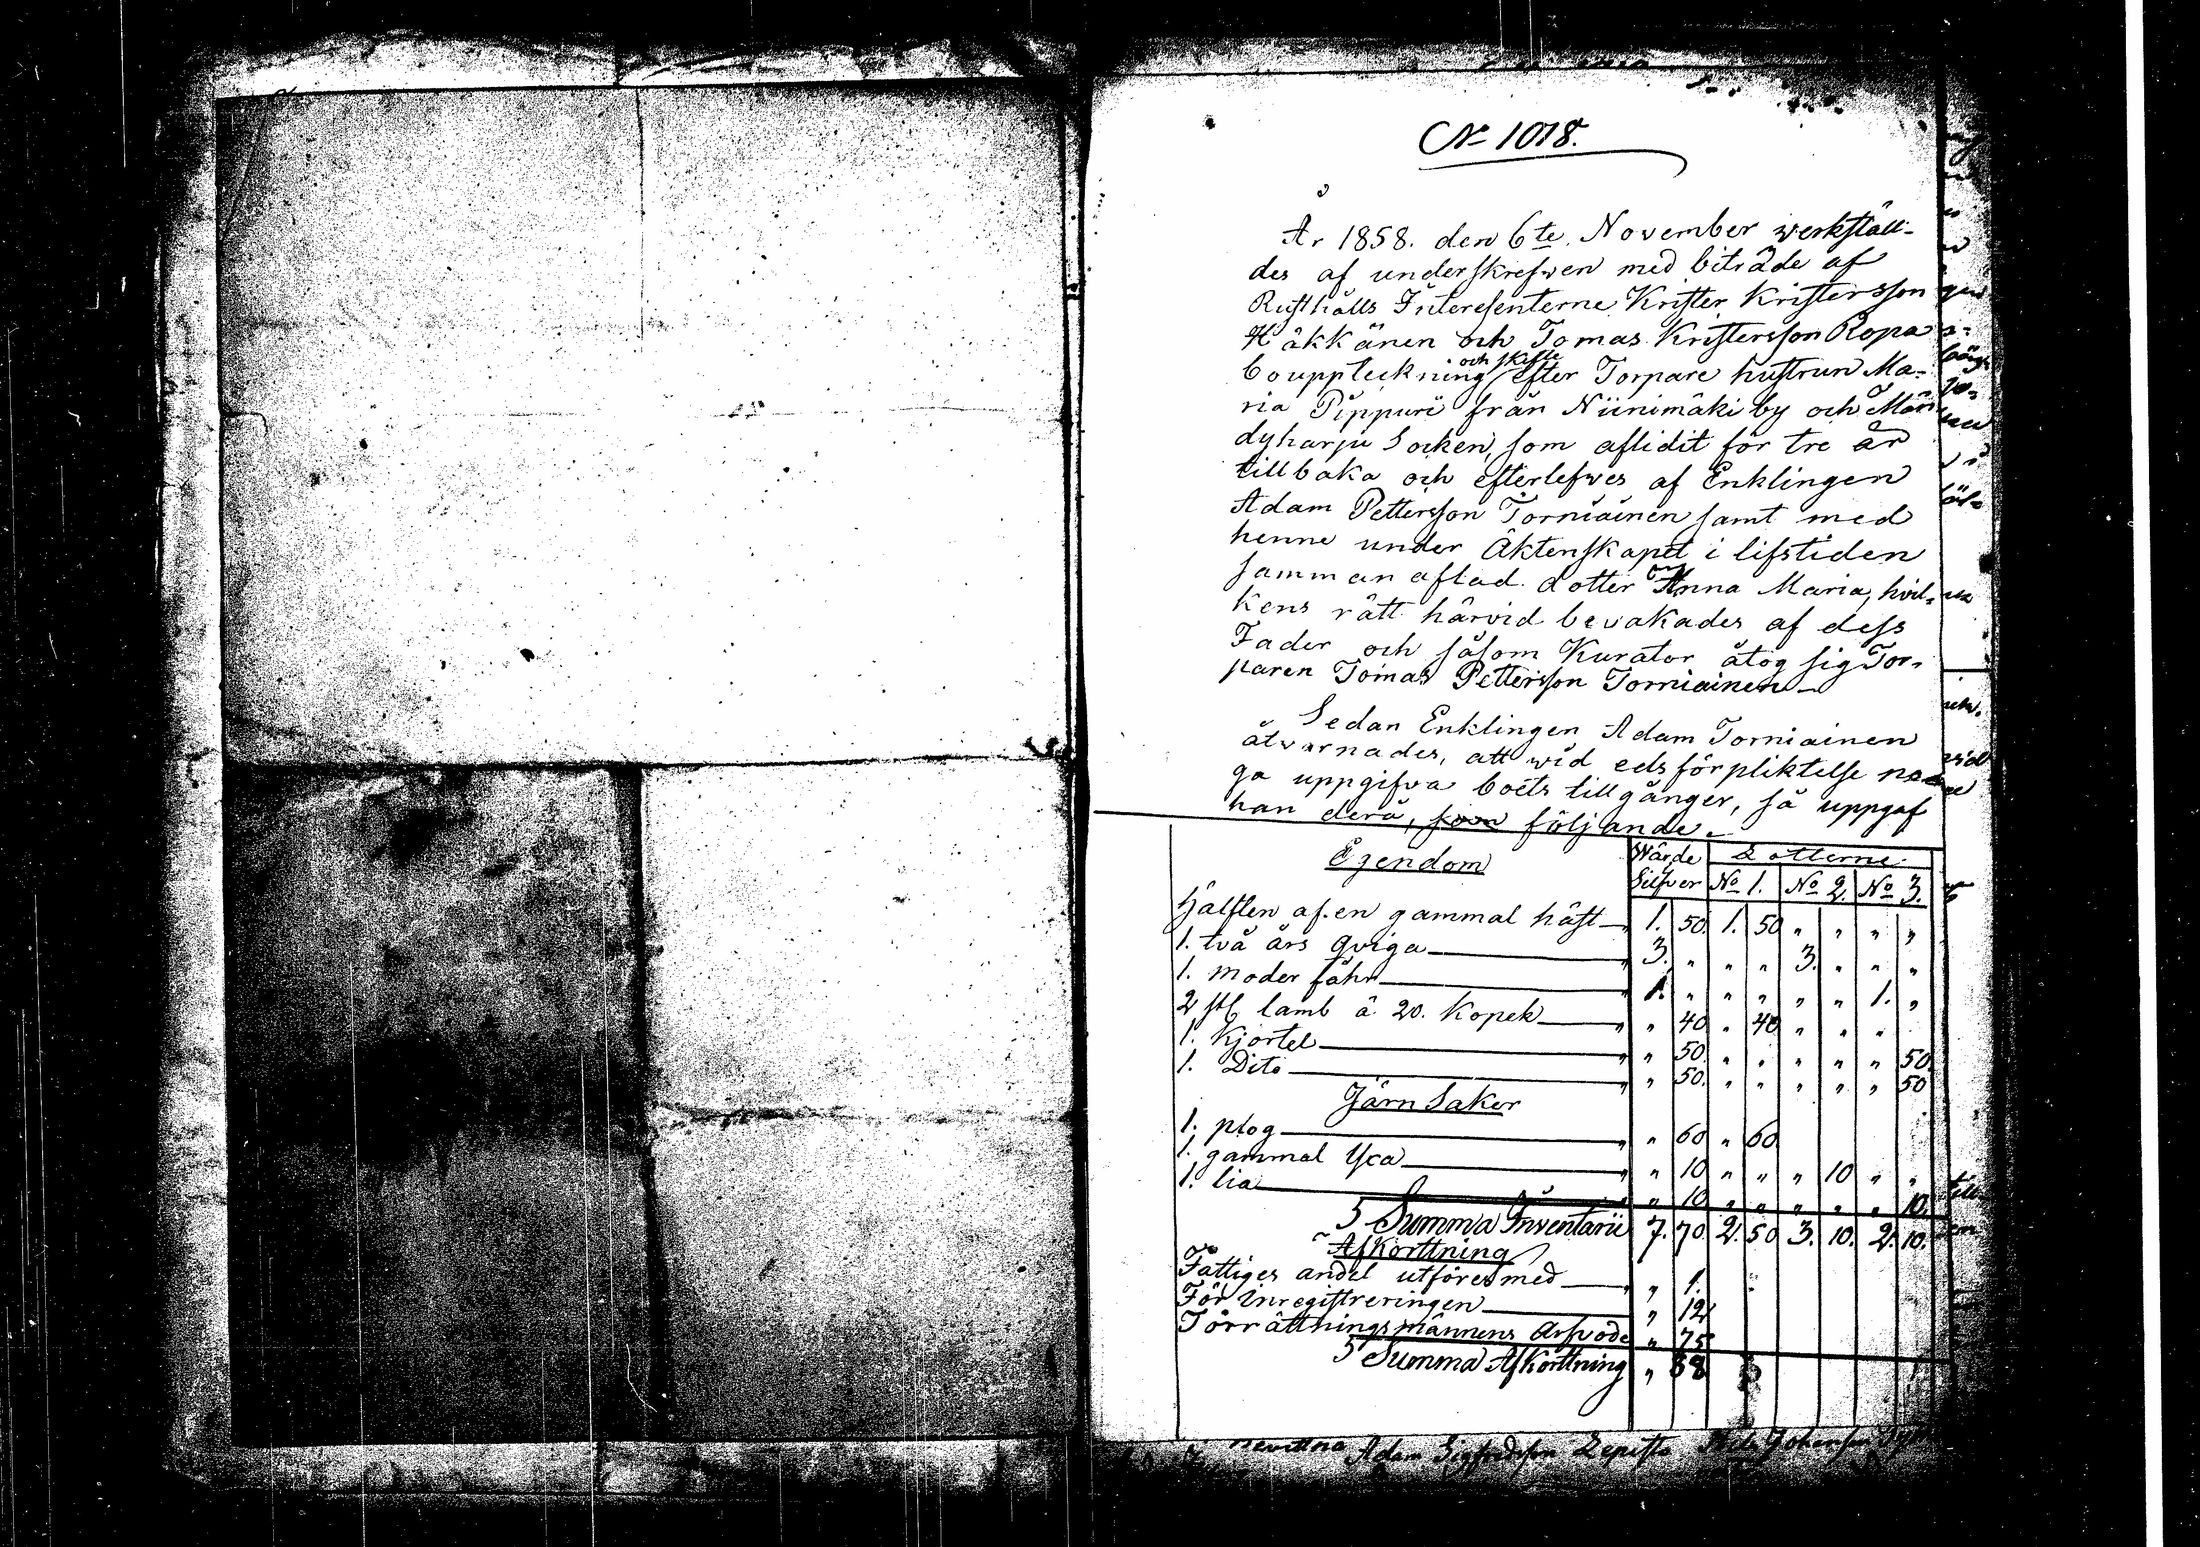 No 1018.
År 1858. den 6te November werkställ-
des af underskrefwen med biträde af
Rusthålls Interesenterne Krister Kristersson
Häkkänen och Tomas Kristersson Ropa
bouppteckning och skifte efter Torpare hustrun Ma-
ria Pippuri från Niinimäki by och Män
dyharju Socken, som aflidit för tre år
tillbaka och efterlefves af Enklingen
Adam Pettersson Torniainen samt med
henne under Äktenskapet i lifstiden
samman aflad dotter Anna Maria, hvil-
kens rätt härvid bevakades af dess
Fader och såsom Kurator åtog sig Tor-
paren Tomas Pettersson Torniainen
Sedan Enklingen Adam Torniainen
åtvarnades, att wid edsförpliktelse
ga uppgifva boets tillgånger, så uppgaf
han derå, som följande
Egendom Wärde Lotterne
Silfver No 1. No 2. No 3.
Hälften af en gammal häst 1. 50. 1. 50 " " " "
1. två års qviga " 3. " " " 3. " " "
1. moder fåhr " 1. " " " " " 1. "
2 st lamb â 20. Kopek " " 40 " 40 " " "
1. Kjortel " " 50 " " " " " 50.
1. Dito " " 50. " " " " " 50
Järn Saker
1. plog " " 60 " 60
1. gammal Yxa " " 10 " " " 10 " "
1. lia " " 10 " " " " " 10.
Summa Inventarii 7. 70. 2. 50 3. 10. 2. 10.
Afkorttning
Fattiges andel utföres med " " 1.
För Inregistreringen " 12
Förrättningsmännens Arfvode " 75
Summa Afkorttning " 88
Adam Sigfredsson